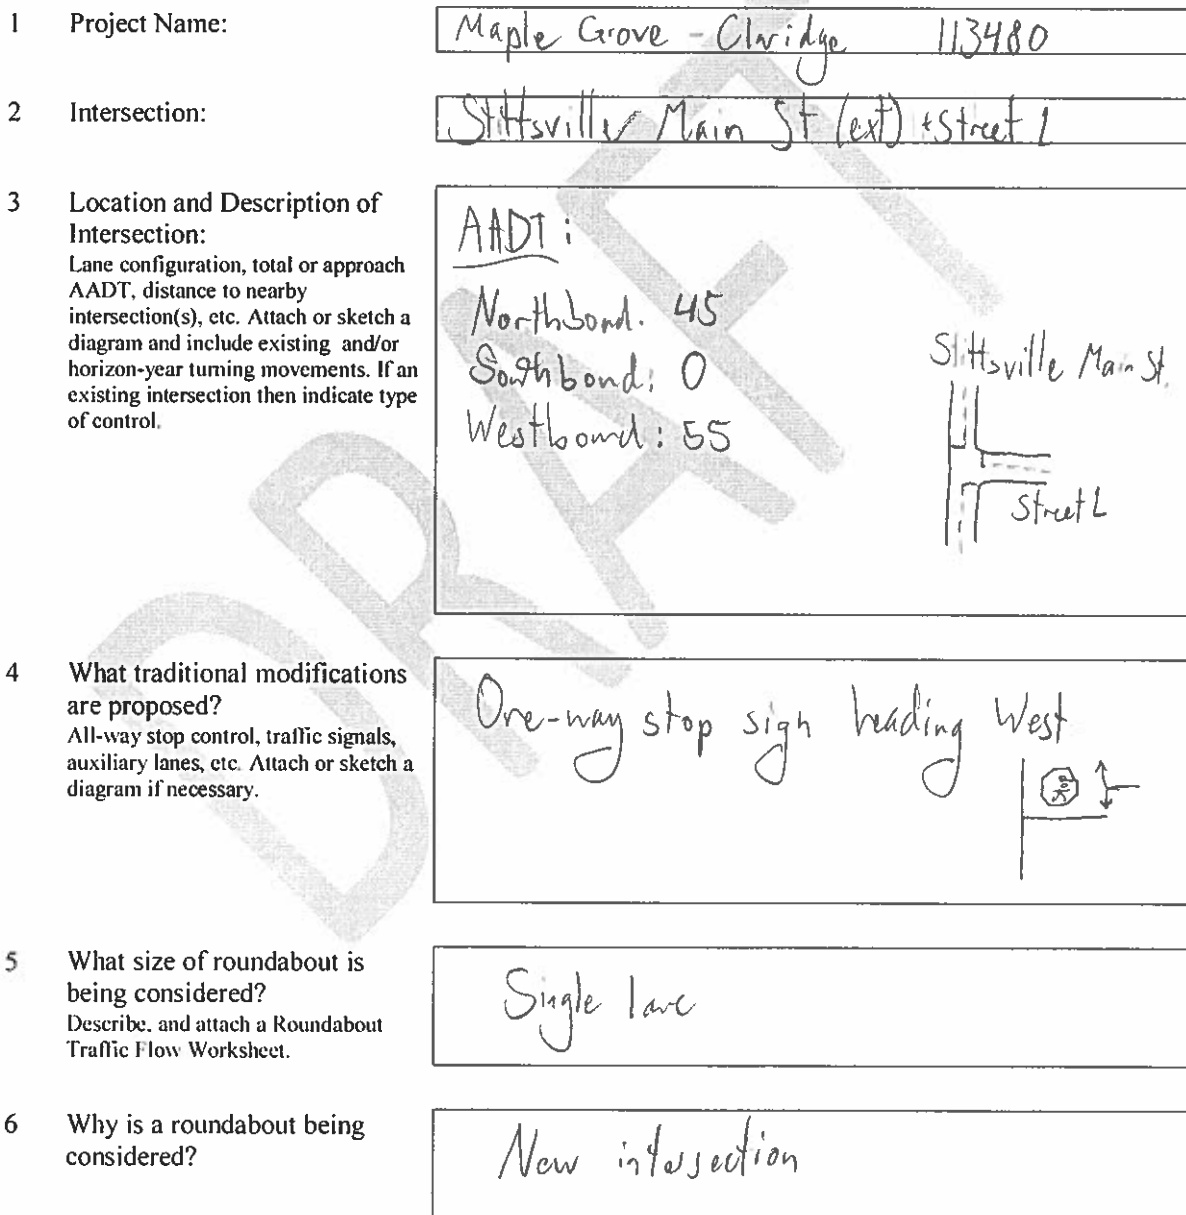 1 Project Name: Maple Grove - Claridge 113480
2 Intersection: Stittsville Main St (ext) + Street L
3 Location and Description of
Intersection:
Lane configuration, total or approach
AADT, distance to nearby
intersection(s), etc. Attach or sketch a
diagram and include existing and/or
horizon-year turning movements. If an
existing intersection then indicate type
of control.
AADT:
Northbond. 45
Southbond: 0
Westbound: 55
Stittsville Main St.
Street L
4 What traditional modifications
are proposed?
All-way stop control, traffic signals,
auxiliary lanes, etc. Attach or sketch a
diagram if necessary.
One-way stop sign heading West
Stop
5 What size of roundabout is
being considered?
Describe, and attach a Roundabout
Traffic Flow Worksheet.
Single lane
6 Why is a roundabout being
considered?
New intersection
DRAFT